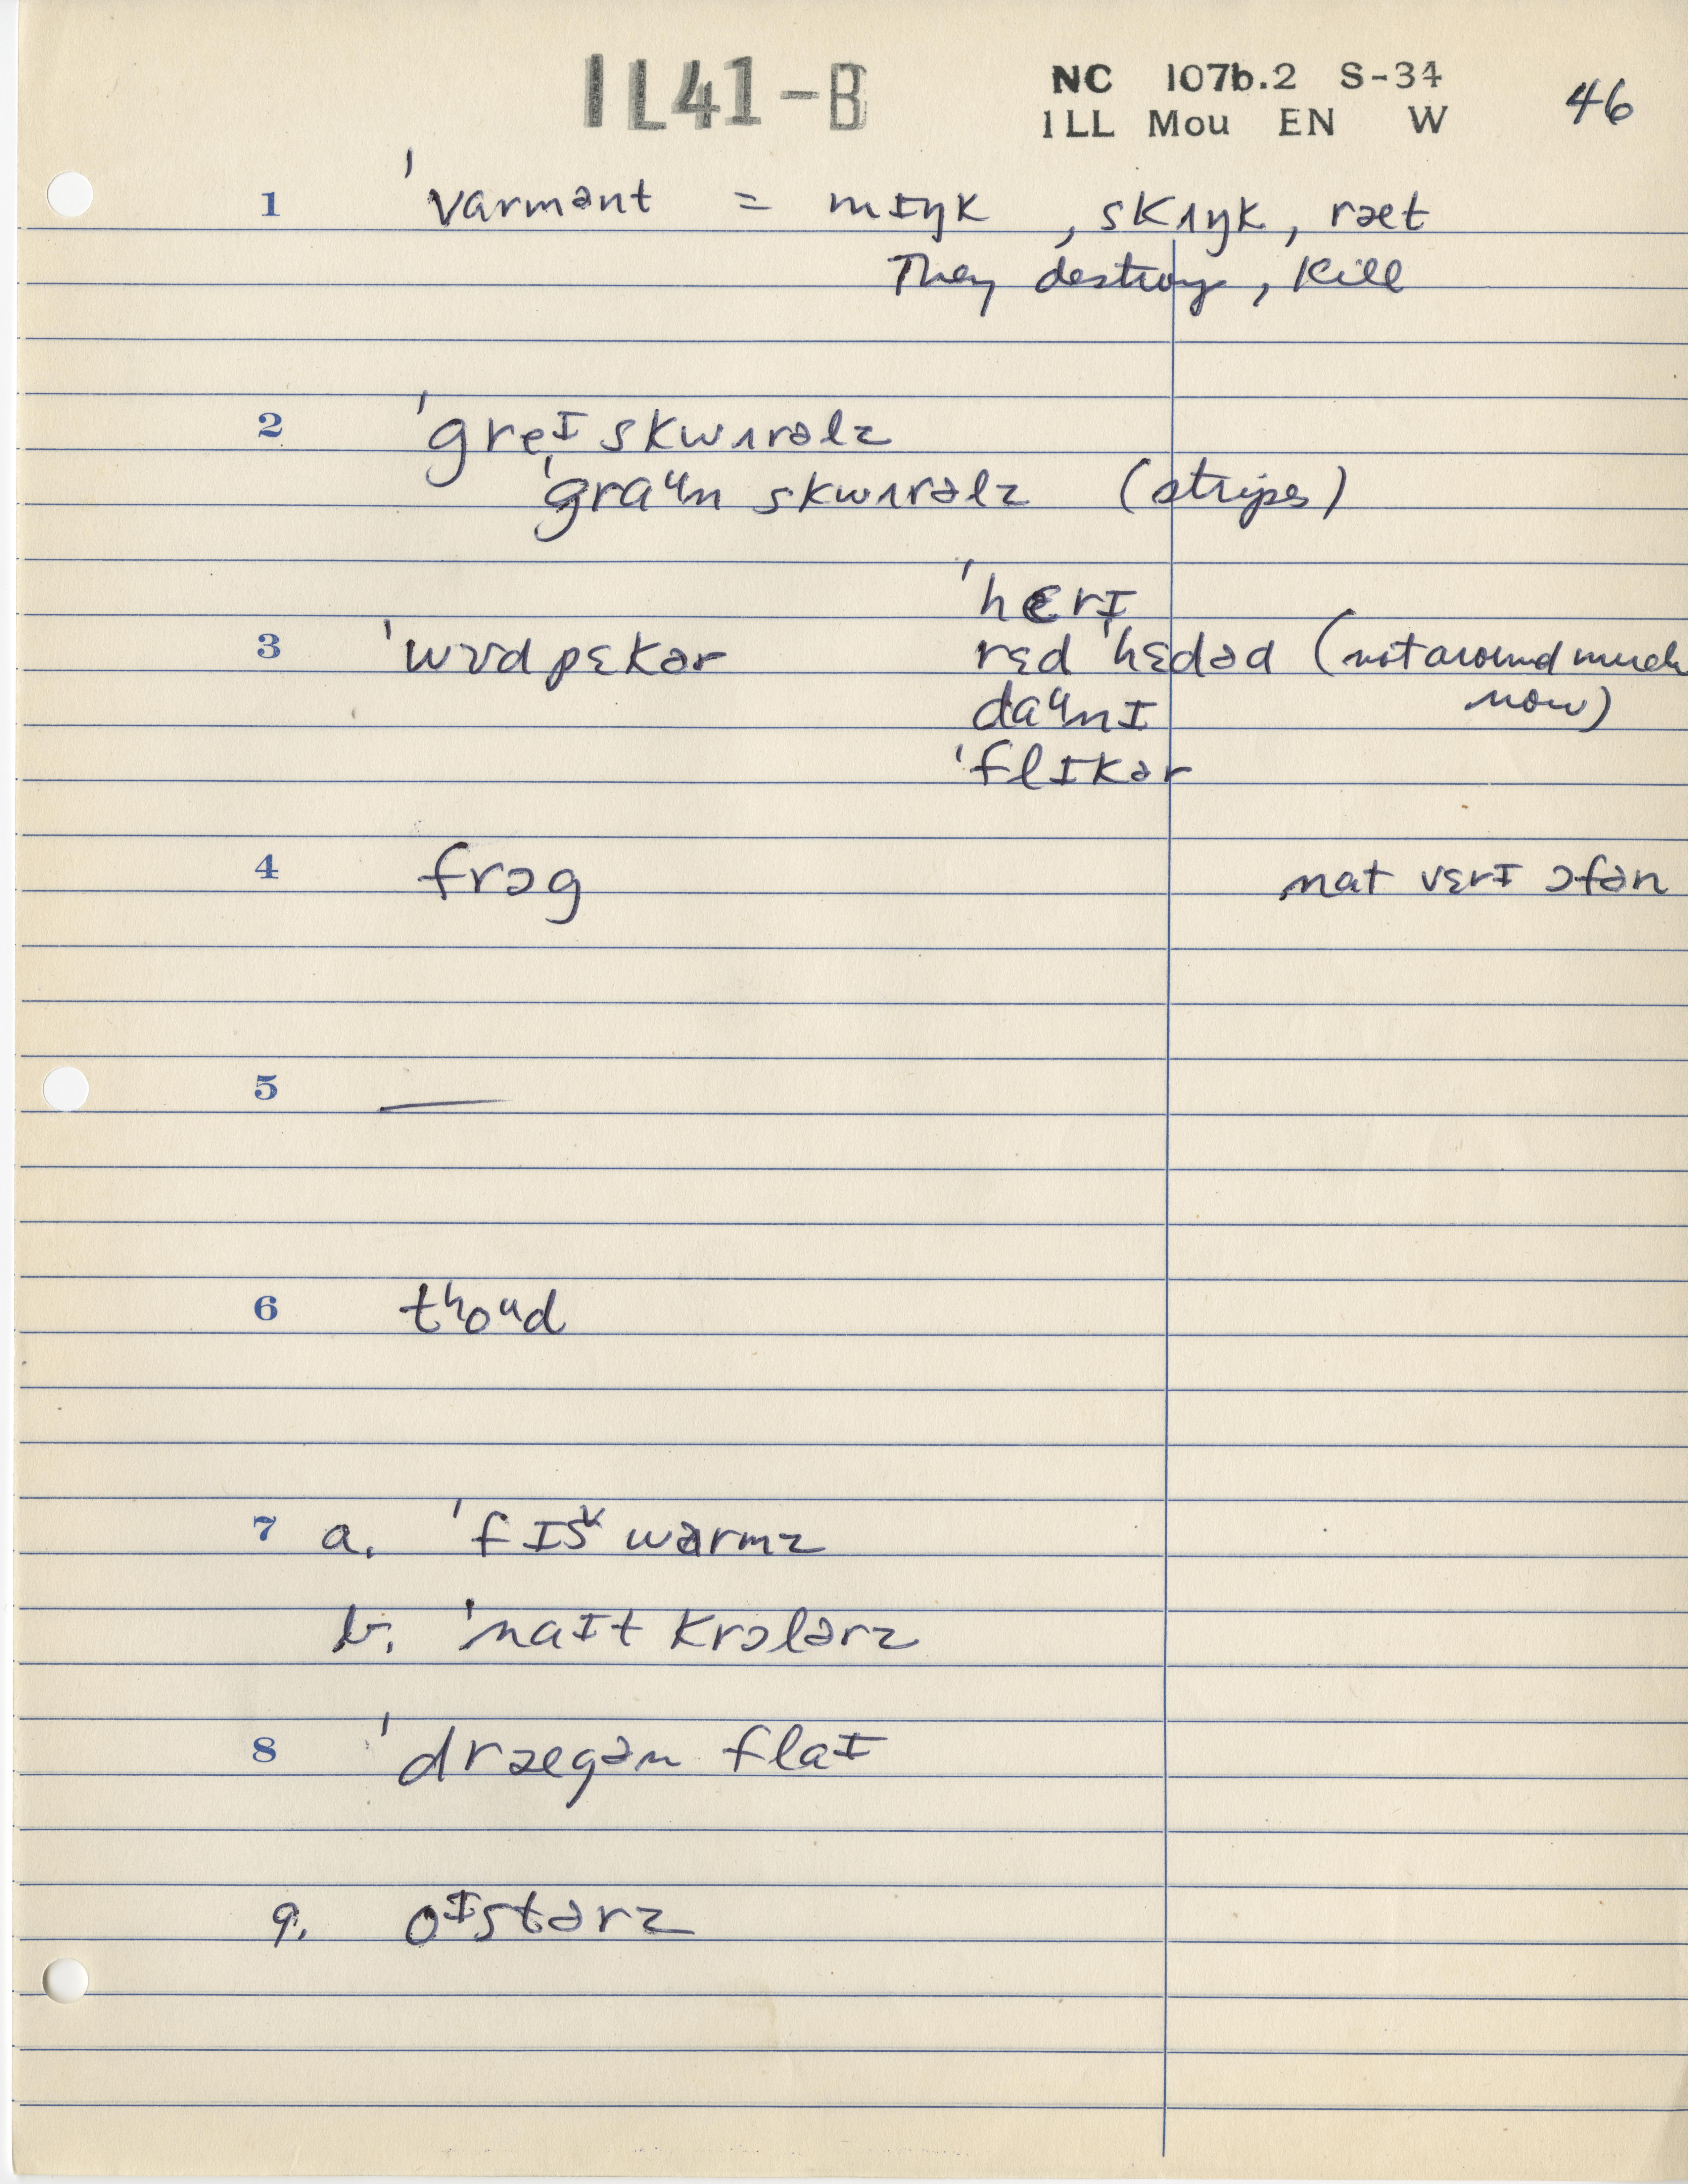 1L41-B
NC 107b.2 S-34
1LL Mou EN W
46
1 ˈvarmənt = mɪŋk, skʌŋk, ræt
They destroy, kill
2 ˈgreᶦ skwʌrəlz
ˈgraᵘn skwʌrəlz (stripes)
ˈhɛrɪ
3 ˈwʊdpɛkər rɛd ˈhɛdəd (not around much
now)
daᵘnɪ
ˈflɪkər
4 frɔg nat vɛrɪ ɔfən
5 —
6 tʰoᵘd
7 a. ˈfɪš wərmz
b. ˈnaɪt krɔlərz
8 ˈdrægən flaɪ
9. oᶦstərz